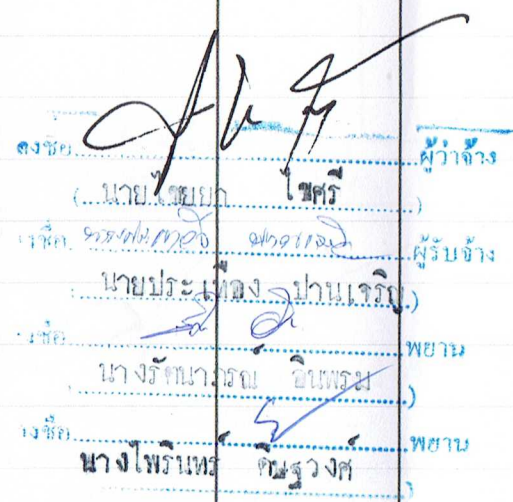 ลงชื่อ ผู้ว่าจ้าง
(นายไชยยา ไขศรี)
ลงชื่อ ผู้รับจ้าง
นายประเทือง ปานเจริญ)
ลงชื่อ พยาน
นางรัตนาภรณ์ อินพรม)
ลงชื่อ พยาน
นางไพรินทร์ ดิษฐวงศ์)